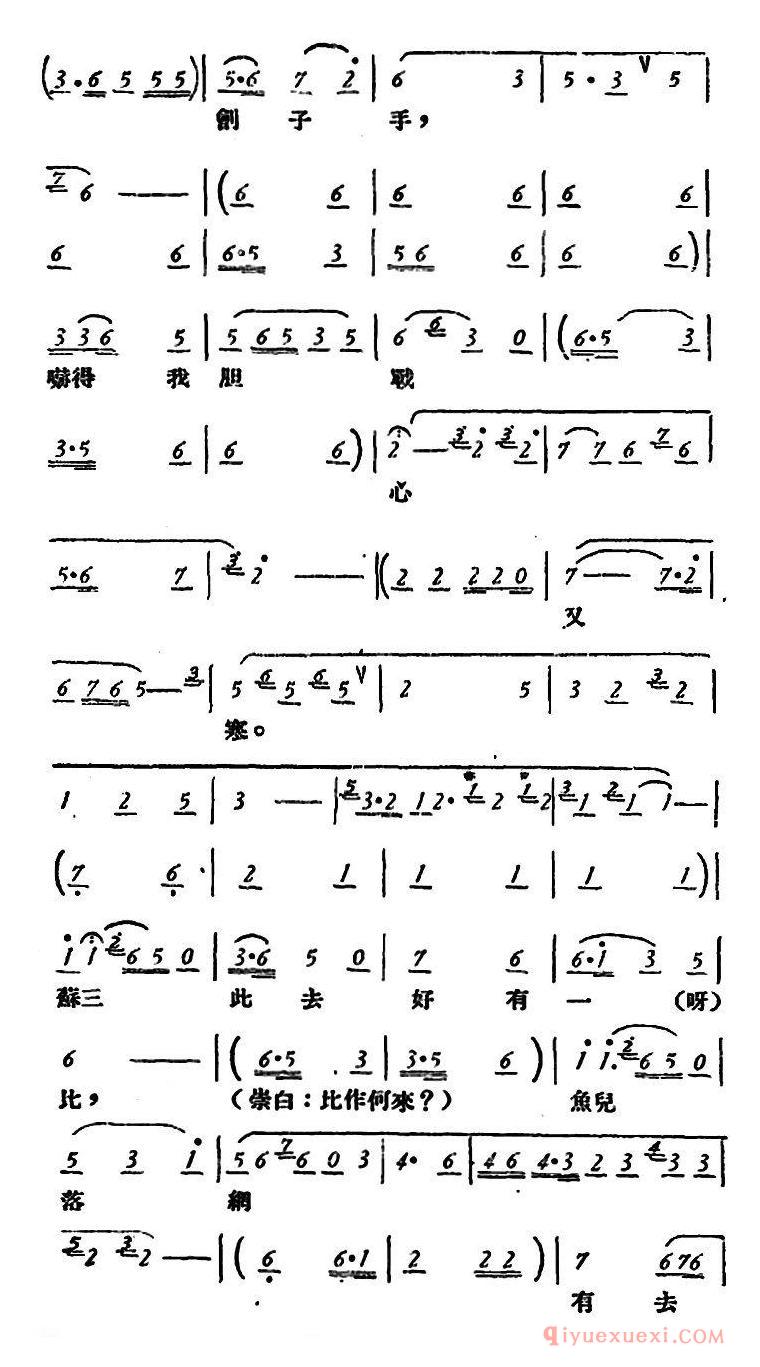 (3·6 5 5 5)| 5·6 7 2 | 6 3 | 5·3 V 5 |
劊子手，
7 6 — |(6 6 | 6 6 | 6 6 |
6 6 | 6·5 3 | 5 6 6 | 6 6)|
3 3 6 5 | 5 6 5 3 5 | 6 6 3 0 |(6·5 3 |
嚇得 我 胆 戰
3·5 6 | 6 6)| 2 — 3 2 3 2 | 7 7 6 7 6 |
心
5·6 7 | 3 2 — |(2 2 2 2 0 | 7 — 7·2 |
又
6 7 6 5 — 3 | 5 6 5 6 5 V | 2 5 | 3 2 3 2 |
寒。
1 2 5 | 3 — | 5 3·2 1 2· 1 2 1 2 | 3 1 2 1 1 — |
(7 6 | 2 1 | 1 1 | 1 1)|
1 1 2 6 5 0 | 3·6 5 0 | 7 6 | 6·1 3 5 |
蘇三 此 去 好 有 一 (呀)
6 — |(6·5 3 | 3·5 6)| 1 1· 2 6 5 0 |
比， (崇白：比作何來？) 魚兒
5 3 1 | 5 6 7 6 0 3 | 4· 6 | 4 6 4·3 2 3 4 3 3 |
落 網
5 2 3 2 — |(6 6·1 | 2 2 2)| 7 6 7 6 |
有 去
qiyuexuexi.com